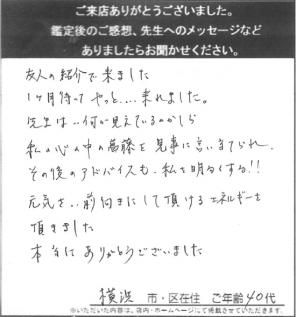 ご来店ありがとうございました。
鑑定後のご感想、先生へのメッセージなど
ありましたらお聞かせください。
友人の紹介で来ました
1ヶ月待って やっと....来れました。
先生は..何が見えているのかしら
私の心の中の葛藤を見事に言い当てられ、
その後のアドバイスも、私を明るくする!!
元気を..前向きにして頂けるエネルギーを
頂きました
本当に ありがとうございました
横浜 市・区在住 ご年齢 40代
※いただいた内容は、店内・ホームページにて掲載させていただきます。